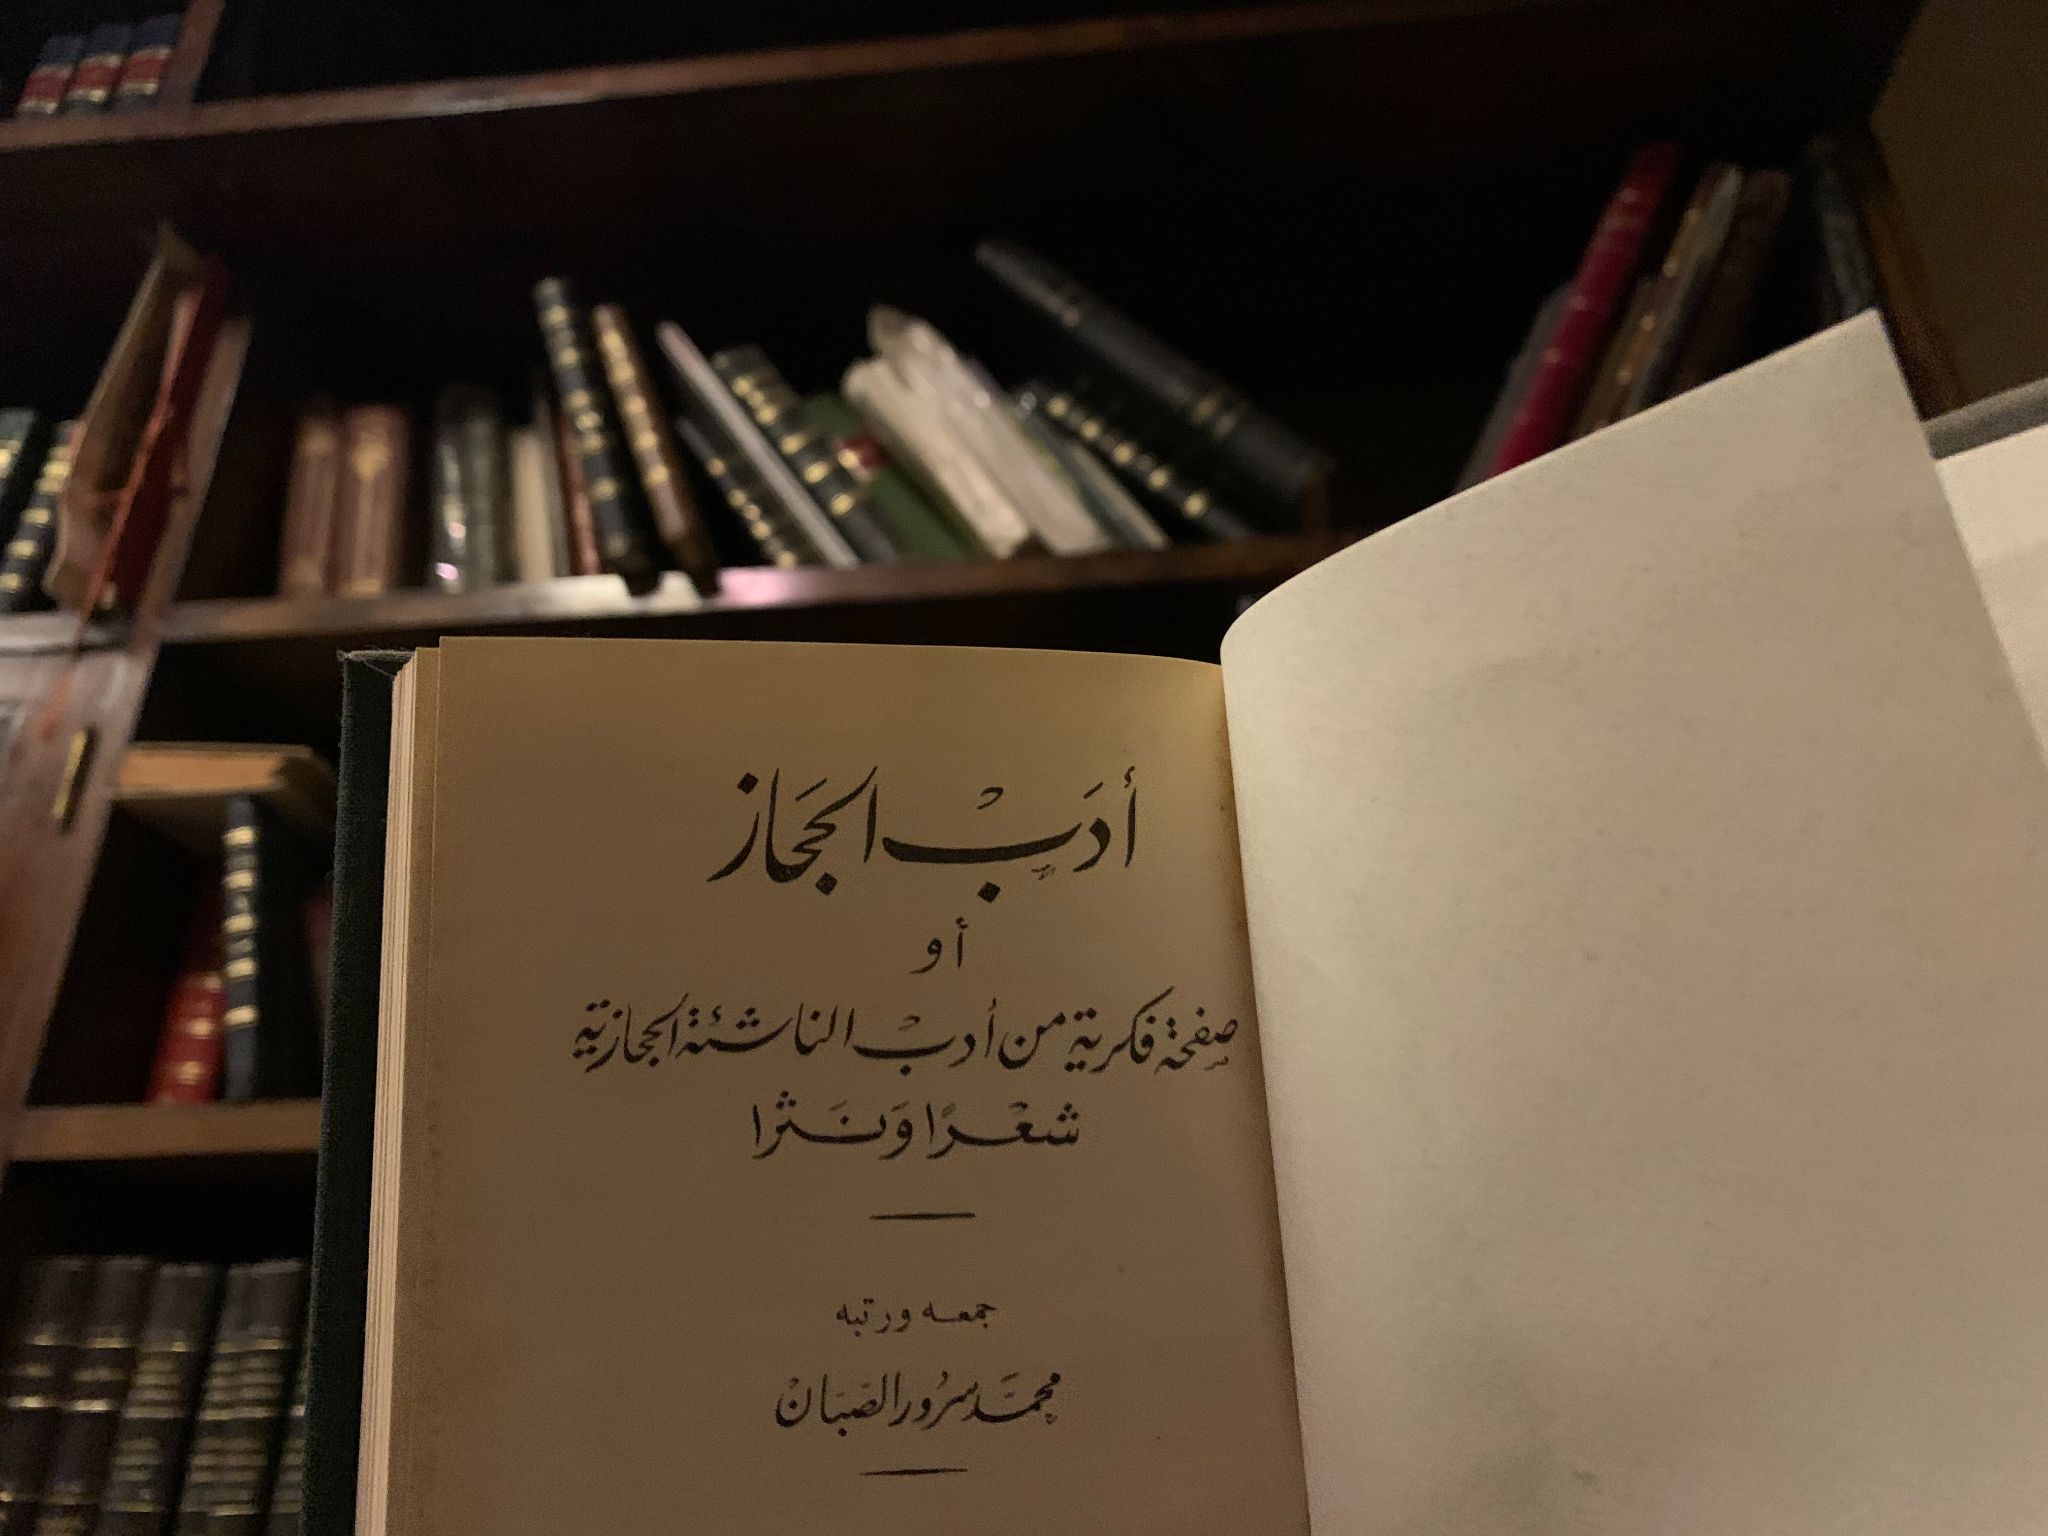 أدَبْ الحجَاز
أو
صفحة فكرية من أدبْ الناشئة الحجازية
شعْرًا وَنَثرا
جمعه ورتبه
محمَّد سرُور الصَبَانْ